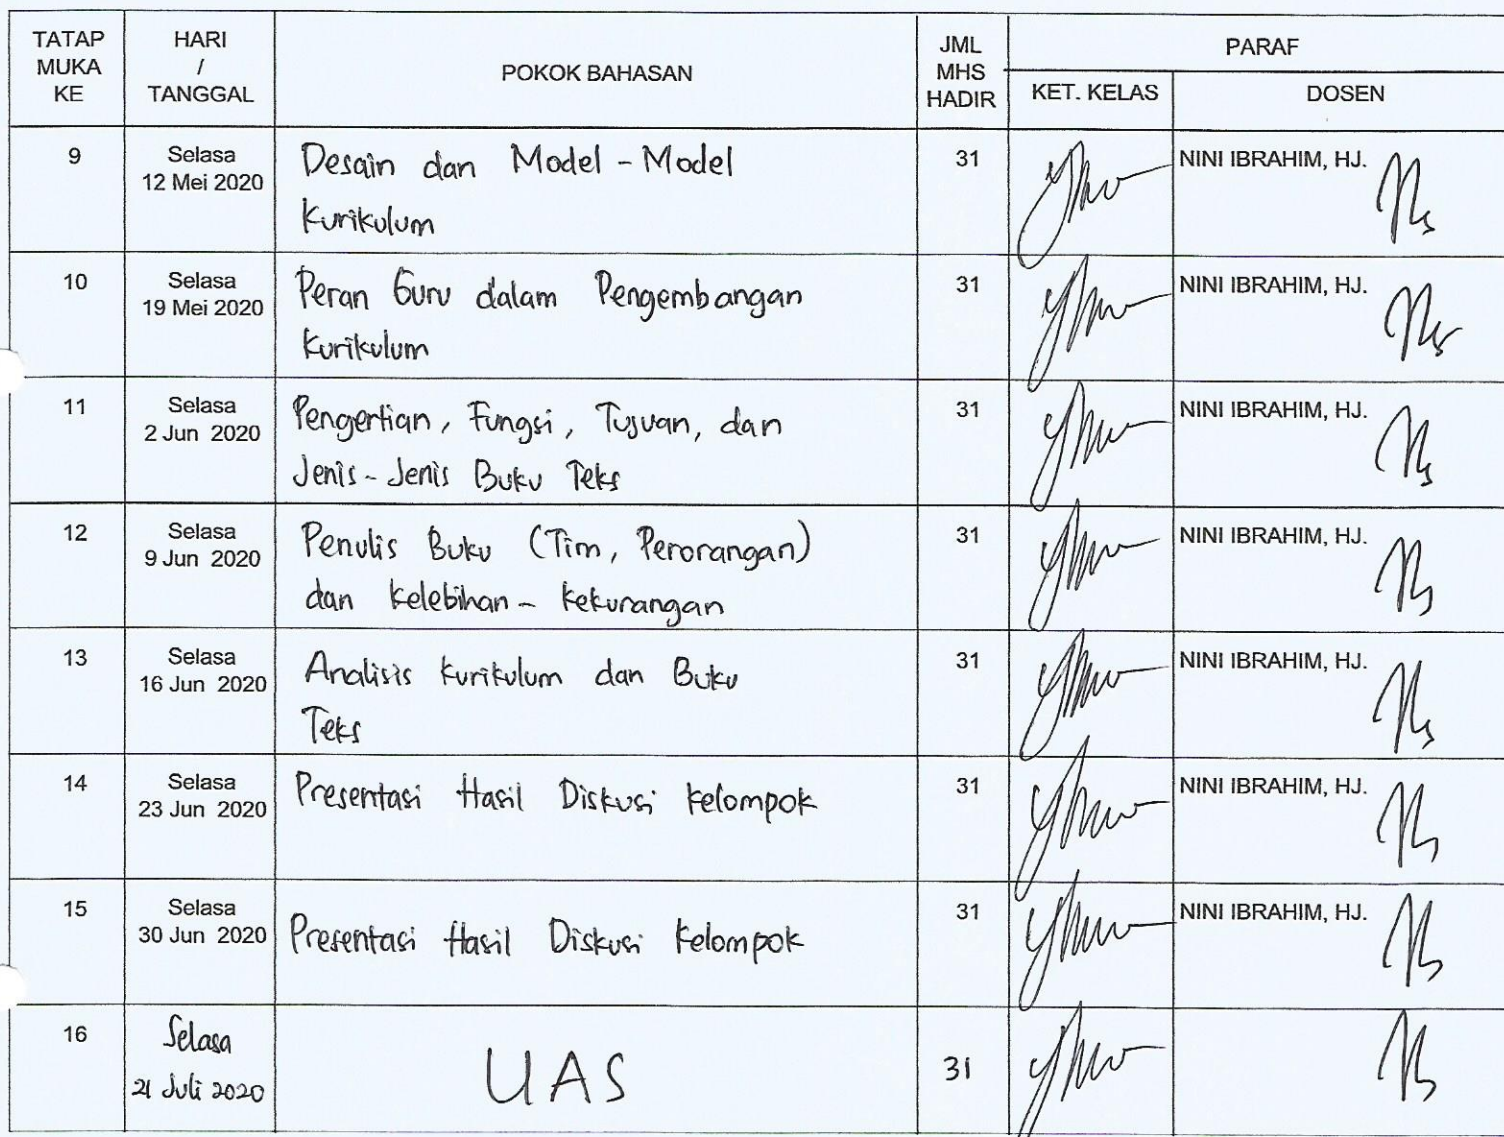 TATAP MUKA KE
HARI / TANGGAL
POKOK BAHASAN
JML MHS HADIR
PARAF
KET. KELAS
DOSEN
9
Selasa
12 Mei 2020
Desain dan Model - Model
Kurikulum
31
NINI IBRAHIM, HJ.
10
Selasa
19 Mei 2020
Peran Guru dalam Pengembangan
Kurikulum
31
NINI IBRAHIM, HJ.
11
Selasa
2 Jun 2020
Pengertian, Fungsi, Tujuan, dan
Jenis - Jenis Buku Teks
31
NINI IBRAHIM, HJ.
12
Selasa
9 Jun 2020
Penulis Buku (Tim, Perorangan)
dan Kelebihan - Kekurangan
31
NINI IBRAHIM, HJ.
13
Selasa
16 Jun 2020
Analisis Kurikulum dan Buku
Teks
31
NINI IBRAHIM, HJ.
14
Selasa
23 Jun 2020
Presentasi Hasil Diskusi Kelompok
31
NINI IBRAHIM, HJ.
15
Selasa
30 Jun 2020
Presentasi Hasil Diskusi Kelompok
31
NINI IBRAHIM, HJ.
16
Selasa
21 Juli 2020
UAS
31